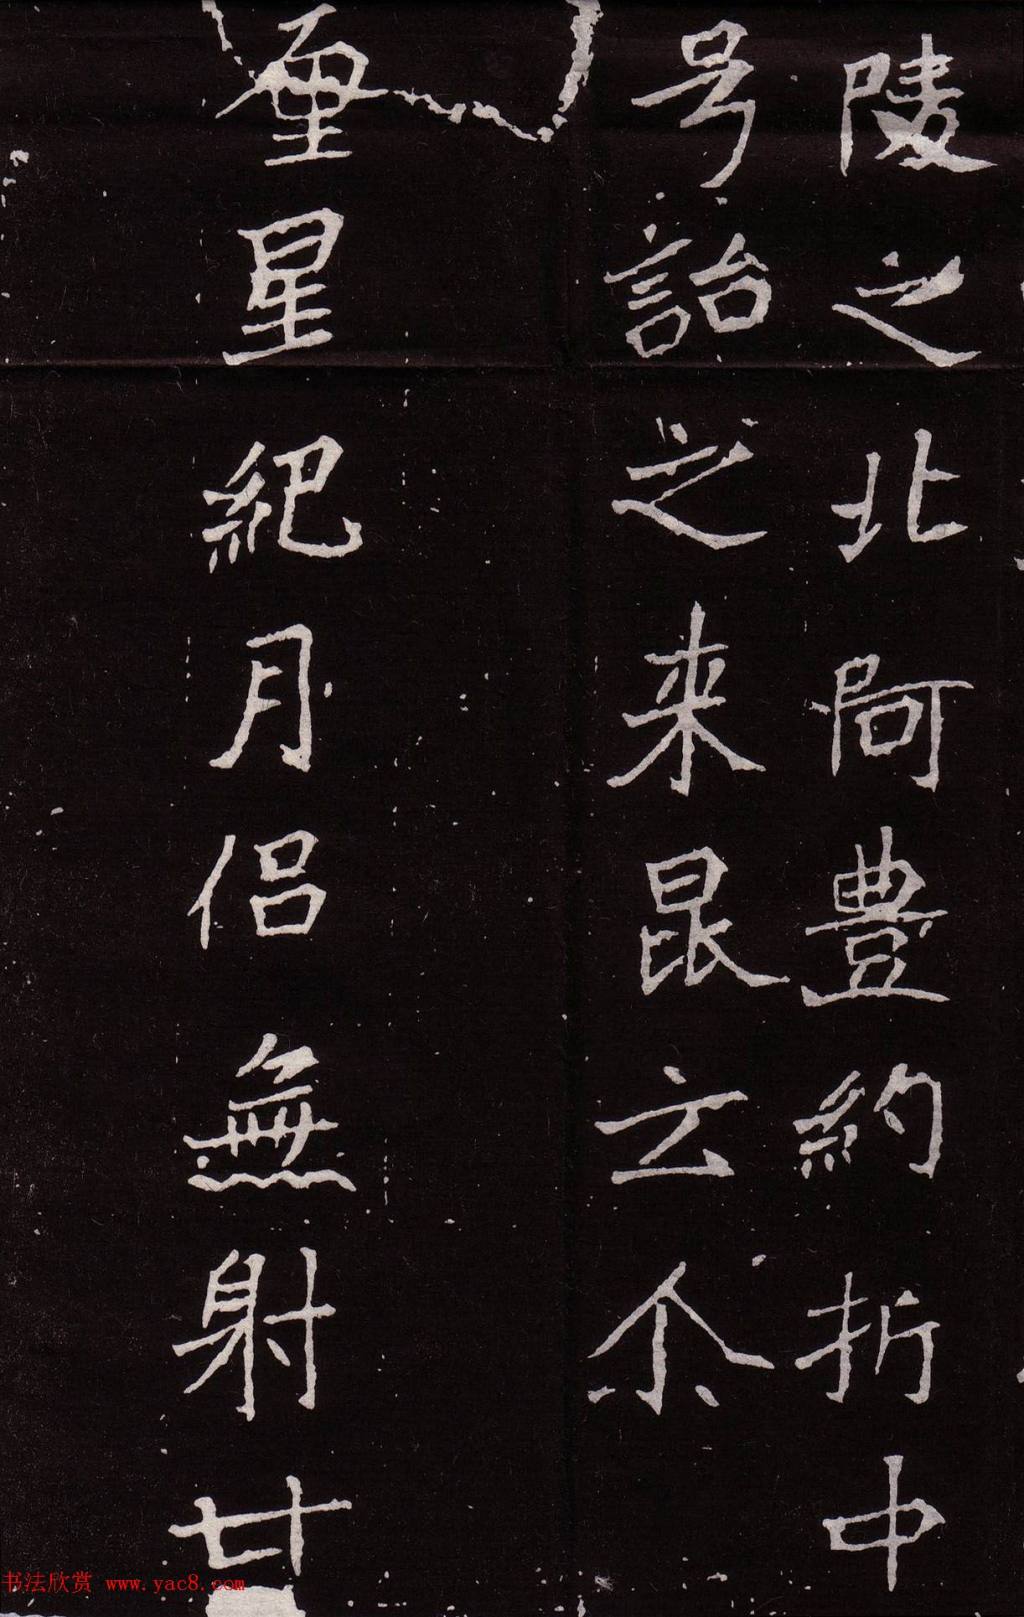 陵之北阿豊約折中
号詒之来昆云尒
𠪨星紀月侣無射廿
书法欣赏 www.yac8.com